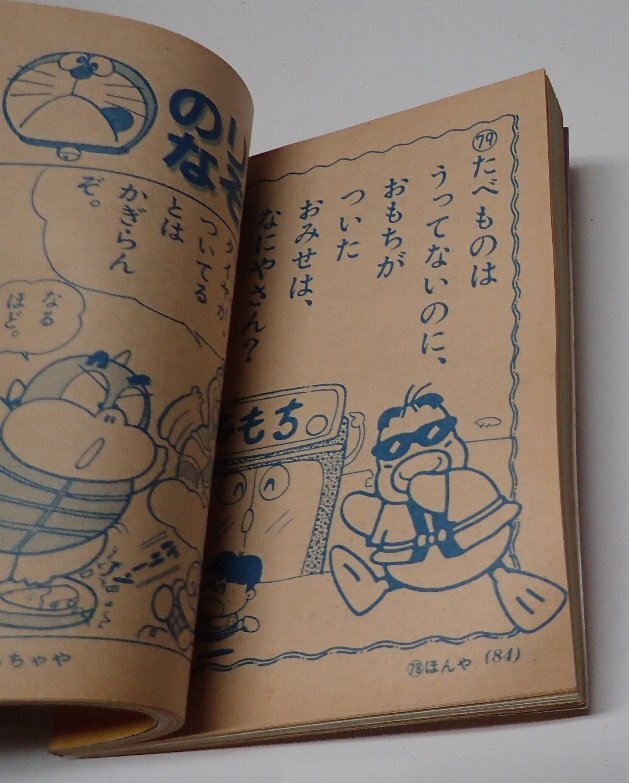 ㊆⑨たべものは
うってないのに、
おもちが
ついた
おみせは、
なにやさん？
もち
㊆⑧ほんや (84)
のり
なぞ
ついてる
とは
かぎらん
ぞ。
なる
ほど。
ちゃや